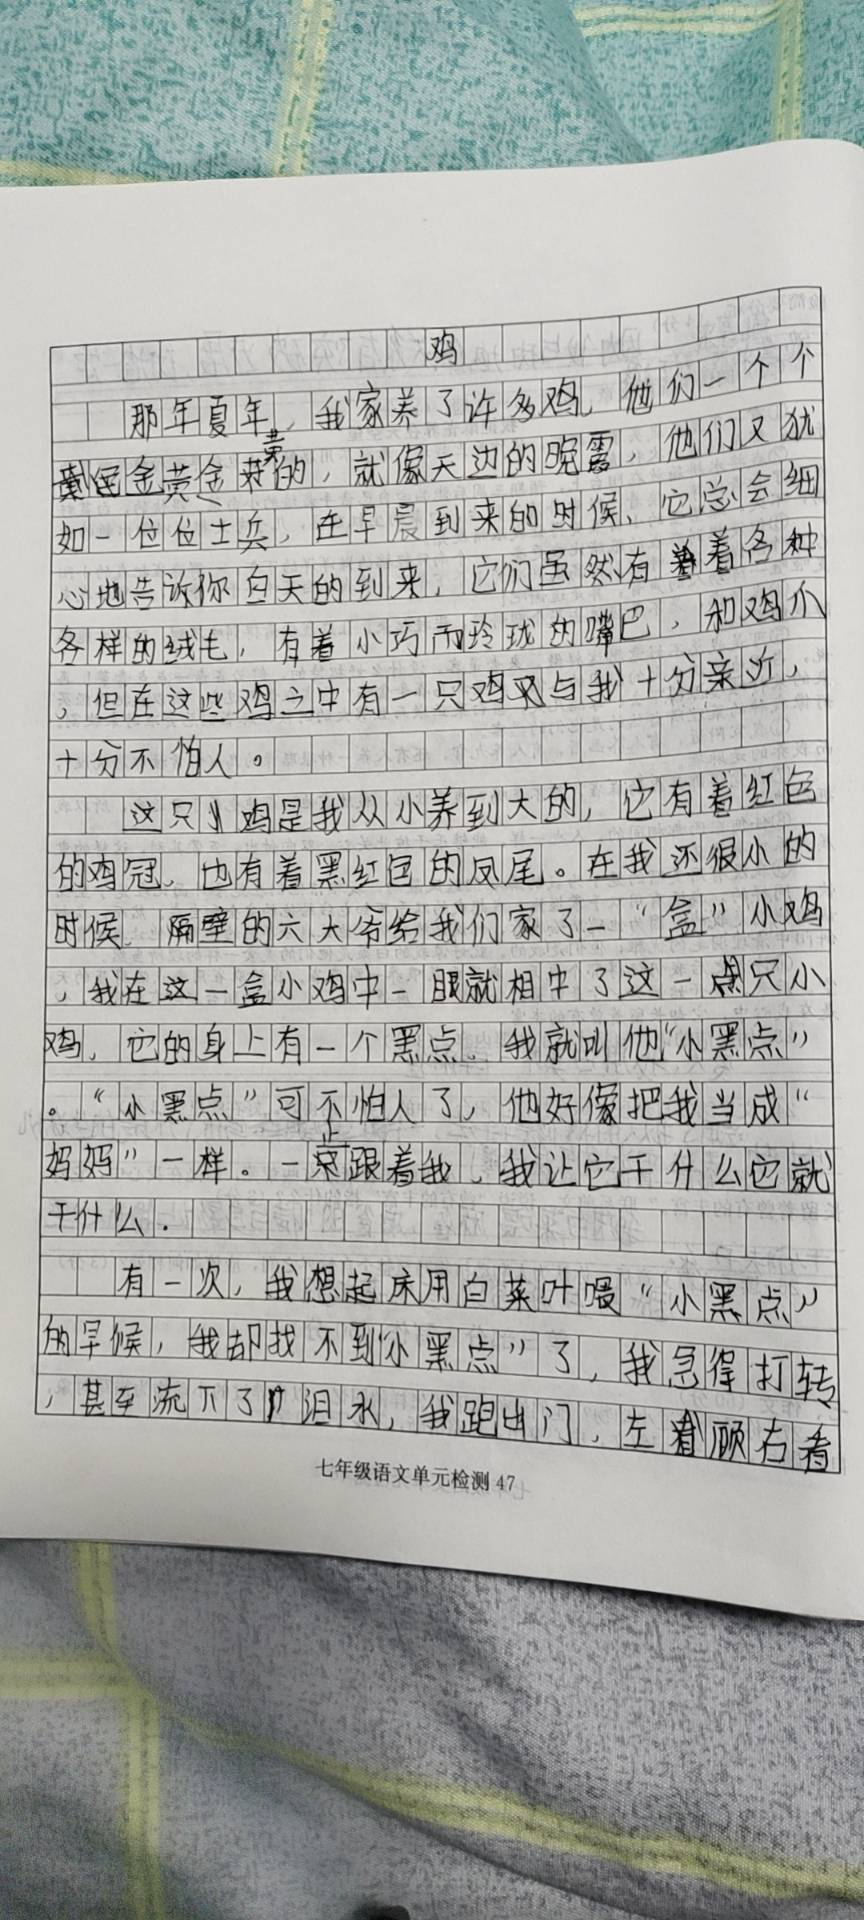 鸡
那年夏年，我家养了许多鸡，他们一个个
金黄金黄的，就像天边的晚霞，他们又犹
如一位位士兵，在早晨到来的时候，它总会细
心地告诉你白天的到来，它们虽然有着各种
各样的绒毛，有着小巧而玲珑的嘴巴，和鸡爪
，但在这些鸡之中有一只鸡又与我十分亲近，
十分不怕人。
这只小鸡是我从小养到大的，它有着红色
的鸡冠，也有着黑红色的凤尾。在我还很小的
时候，隔壁的六大爷给我们家了一“盒”小鸡
，我在这一盒小鸡中一眼就相中了这一只小
鸡，它的身上有一个黑点，我就叫他“小黑点”
。“小黑点”可不怕人了，他好像把我当成“
妈妈”一样。一直跟着我，我让它干什么它就
干什么.
有一次，我想起床用白菜叶喂“小黑点”
的早候，我却找不到“小黑点”了，我急得打转
，甚至流下了泪水，我跑出门，左看顾右看
七年级语文单元检测 47